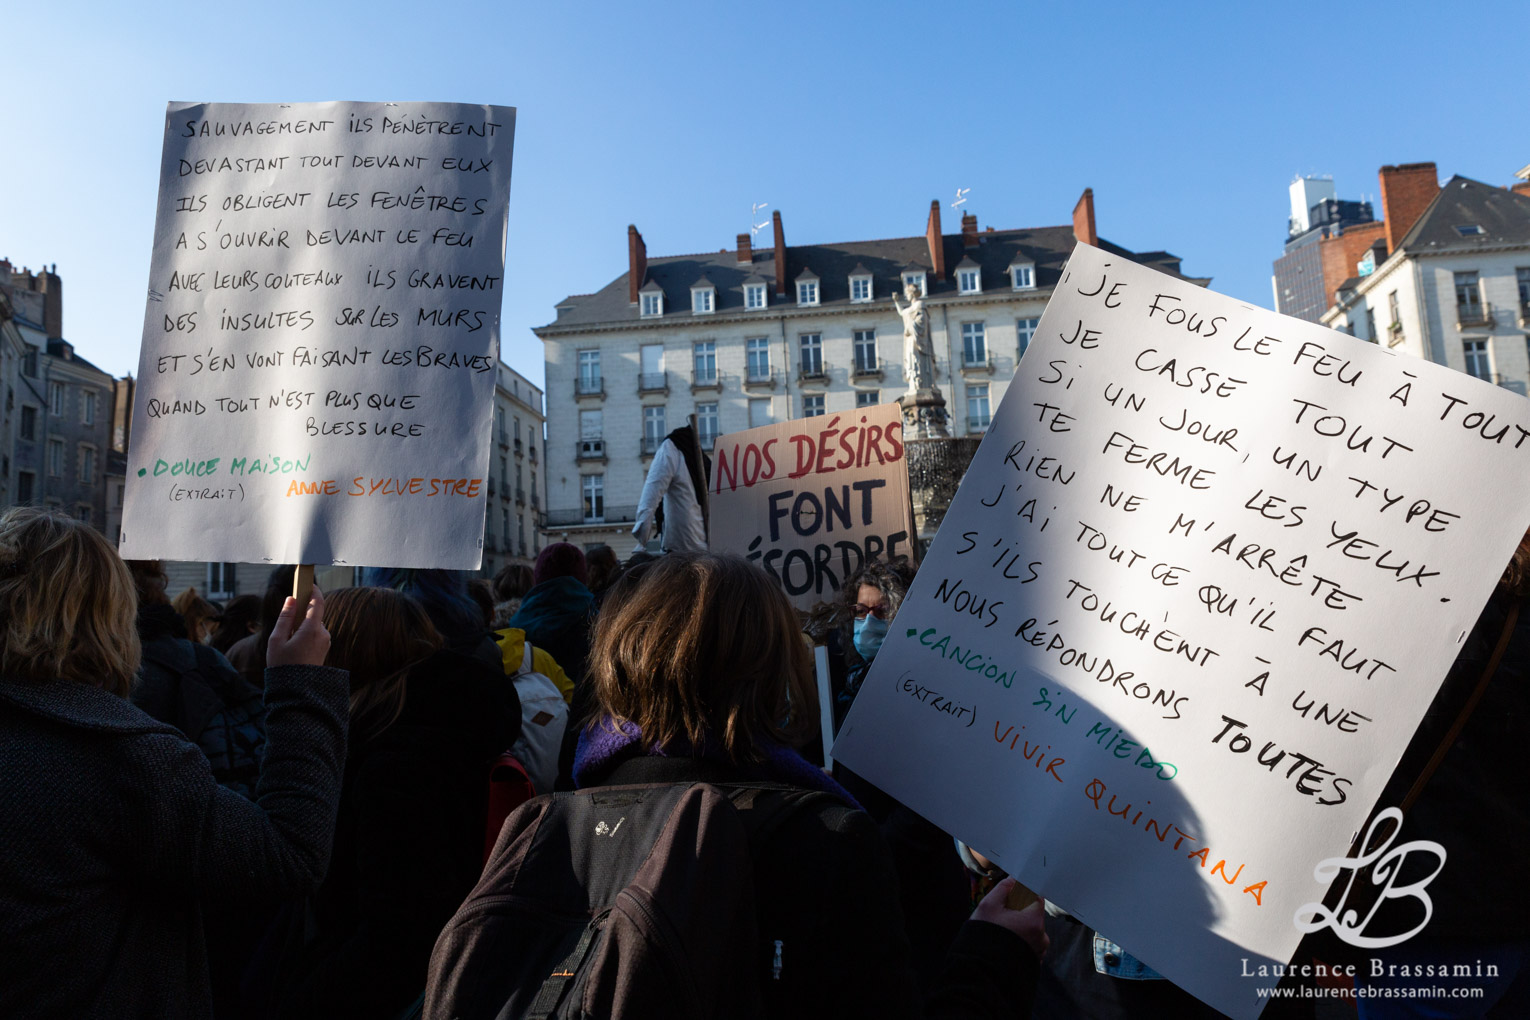 SAUVAGEMENT ILS PÉNÈTRENT
DEVASTANT TOUT DEVANT EUX
ILS OBLIGENT LES FENÊTRES
A S'OUVRIR DEVANT LE FEU
AVEC LEURS COUTEAUX ILS GRAVENT
DES INSULTES SUR LES MURS
ET S'EN VONT FAISANT LES BRAVES
QUAND TOUT N'EST PLUS QUE
BLESSURE
• DOUCE MAISON
(EXTRAIT) ANNE SYLVESTRE
NOS DÉSIRS
FONT
DÉSORDRE
JE FOUS LE FEU À TOUT
JE CASSE TOUT
SI UN JOUR, UN TYPE
TE FERME LES YEUX.
RIEN NE M'ARRÊTE
J'AI TOUT CE QU'IL FAUT
S'ILS TOUCHENT À UNE
NOUS RÉPONDRONS TOUTES
• CANCION SIN MIEDO
(EXTRAIT) VIVIR QUINTANA
LB
Laurence Brassamin
www.laurencebrassamin.com